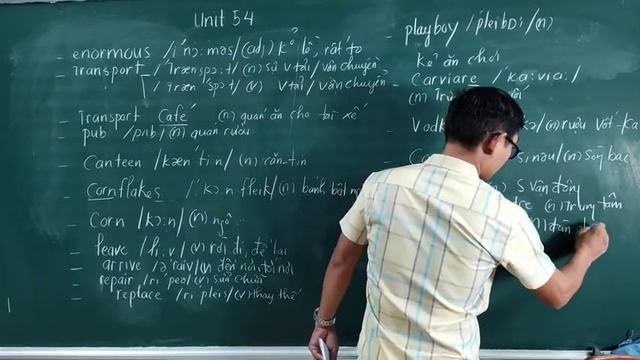 Unit 54
- enormous /i'nɔ:məs/(adj) k° lồ, rất to
- Transport /'trænspɔ:t/(n) sự v tải/vận chuyển
/træn'spɔ:t/ (v) v tải/vận chuyển
- Transport Café (n) quán ăn cho tài xế
- pub /pʌb/(n) quán rượu
- Canteen /kæn'ti:n/(n) căn-tin
- Cornflakes /'kɔ:nfleik/(n) bánh bột ngô
- Corn /kɔ:n/(n) ngô
- leave /li:v/(v) rời đi, để lại
- arrive /ə'raiv/(v) đến nơi, tới nơi
- repair /ri'peə/(v) sửa chữa
- replace /ri'pleis/(v) thay thế
playboy /'pleibɔi/(n)
kẻ ăn chơi
- Carviare /'ka:via:/
(n) Trứ
- Vodk /rượu Vót-ka
- Ca si'nəu/(n) Sòng bạc
(n) S vận động
(n) Trung tâm
(n) đàn